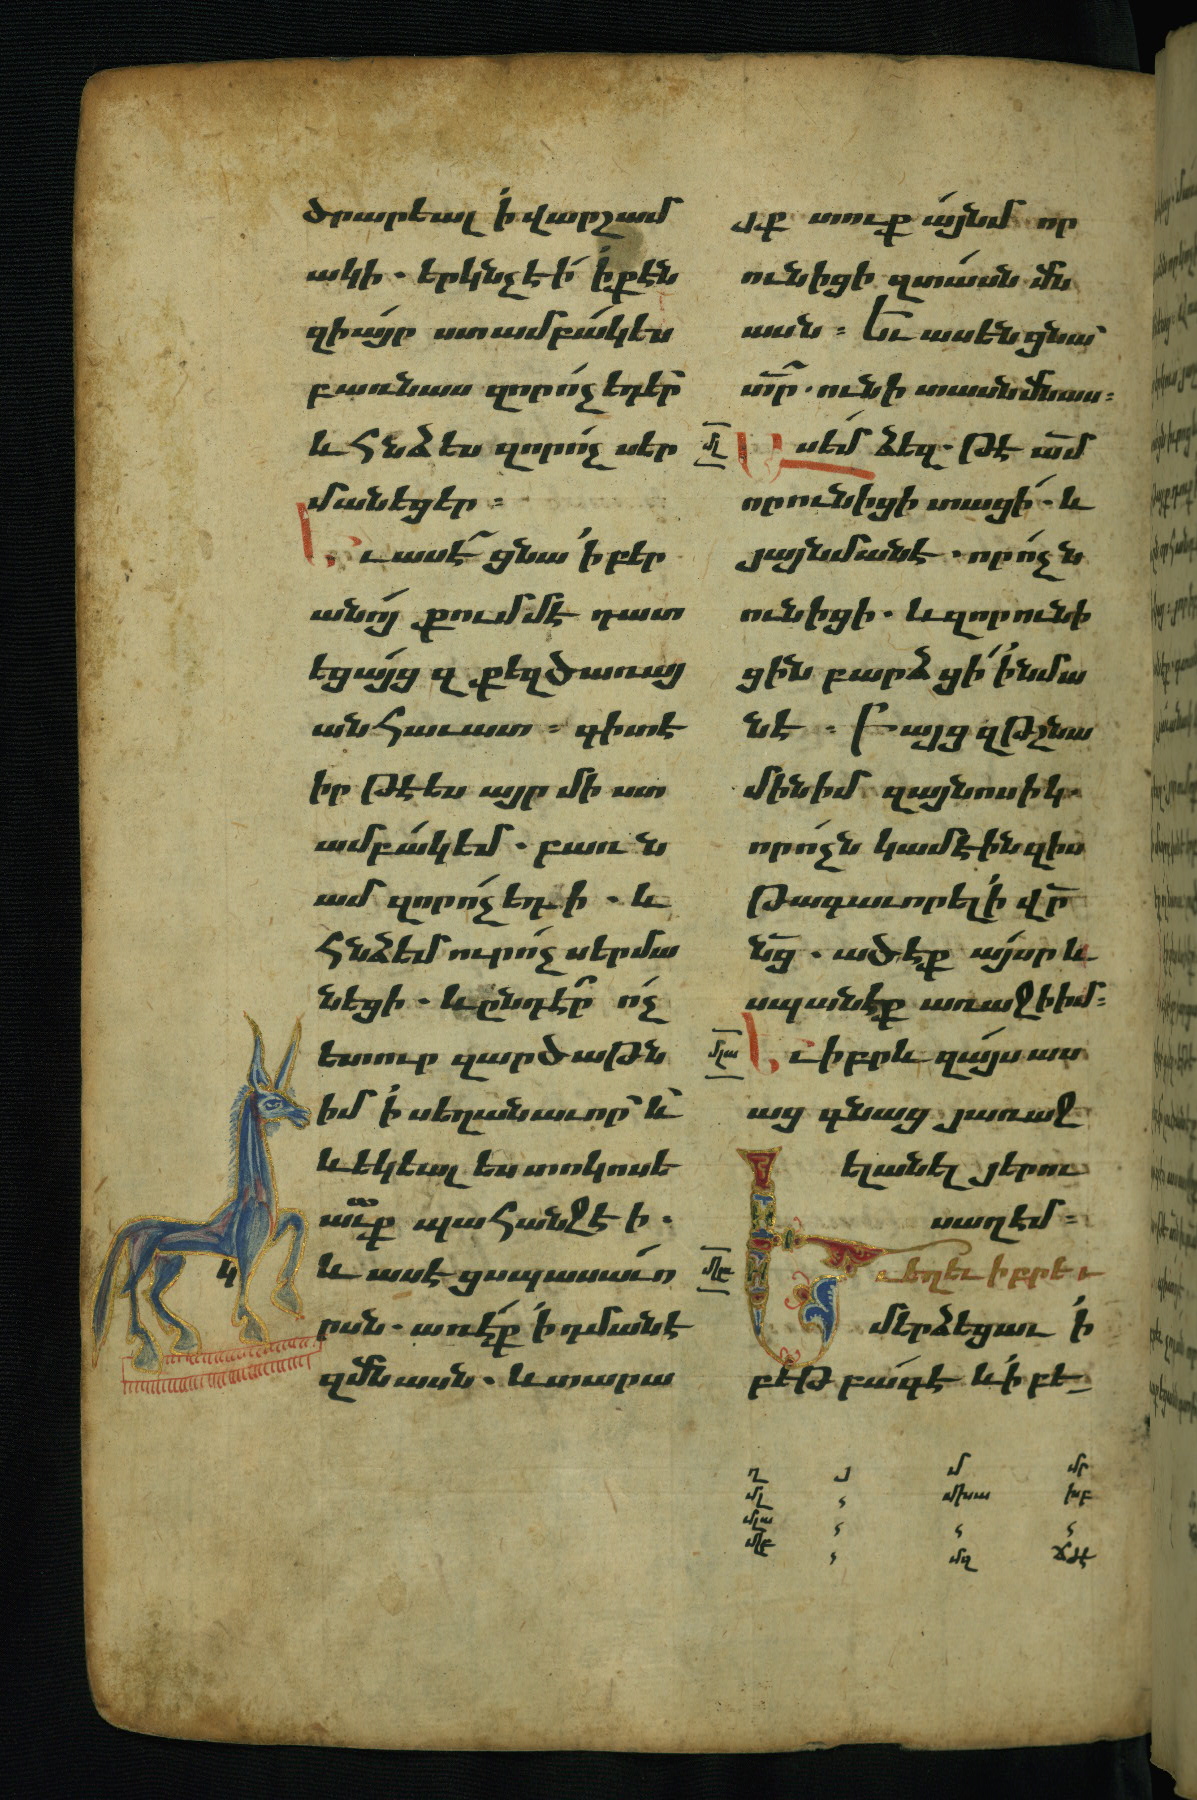 ծրարեալ ի վարշամ
ակի. երկնչէի ի քէն
զի այր ստամբակ ես
բառնաս զոր ոչ եդեր
և հնձես զոր ոչ սեր
մանեցեր։
Եւ ասէ ցնա ի բեր
անոյ քումմէ դատ
եցայց զքեզ ծառայ
անհաւատ։ գիտէ
իր թէ ես այր մի ստ
ամբակ եմ. բառն
ամ զոր ոչ եդի. և
հնձեմ ուր ոչ սերմա
նեցի. և ընդէր ոչ
ետուր զարծաթն
իմ ի սեղանաւորս և
և եկեալ ես տոկոսե
աւք պահանջէի.
և ասէ ցսպասաւո
րսն. առէք ի դմանէ
զմնասն. և տարա
կ
յք տուք այնմ որ
ունիցի զտասն մն
ասն։ Եւ ասեն ցնա
տր. ունի տասն մնաս։
մլ Ասեմ ձեզ. թէ ամ
որ ունիցի տացի. և
յայնմանէ. որ ոչն
ունիցի. և զոր ունի
ցին բարձցի ինմա
նէ։ Բայց զթշնա
մին իմ զայնոսիկ.
որ ոչն կամէին զիս
թագաւորել ի վր
նց. ածէք այսր և
սպանէք առաջի իմ։
մլա Եւ իբրև զայս աս
աց գնաց յառաջ
ելանել յերու
սաղեմ։
մլբ Եւ եղև իբրև
մերձեցաւ ի
բեթբագէ և ի բե
ղ յ մ մր
մլ , միսա խբ
մլա , , ,
մլբ , մզ ճժէ